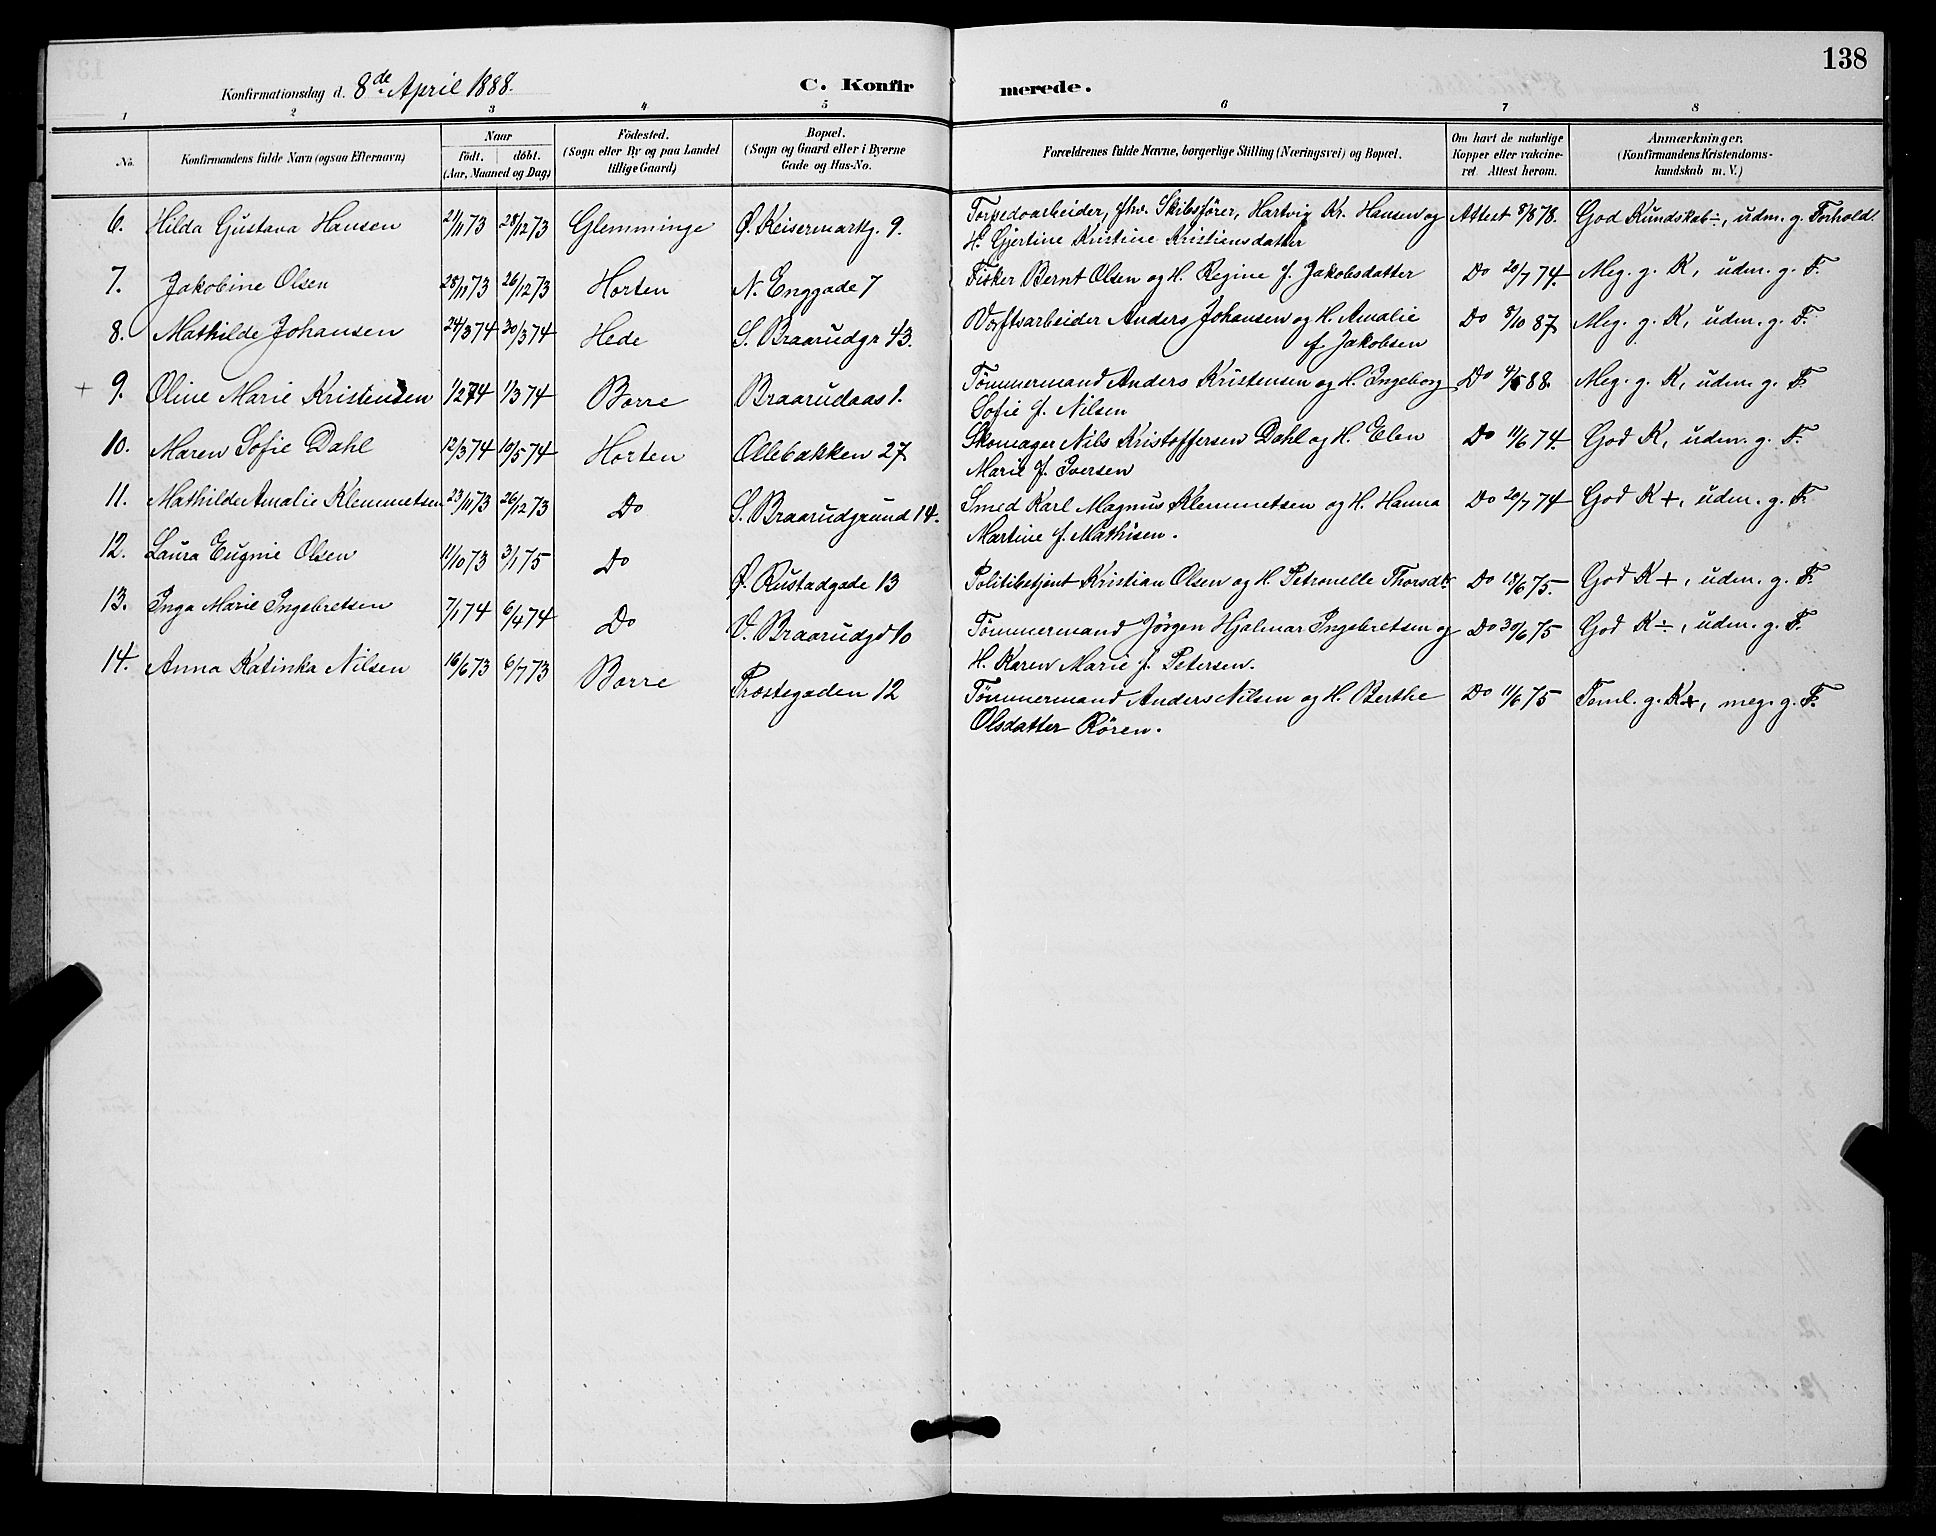 138
Konfirmationsdag d. 8de April 1888. C. Konfirmerede.
1 2 3 4 5 6 7 8
No. Konfirmandens fulde Navn (ogsaa Efternavn) Naar født. døbt. (Aar, Maaned og Dag) Födested. (Sogn eller By og paa Landet tillige Gaard) Bopæl. (Sogn og Gaard eller i Byerne Gade og Hus-No. Forældrenes fulde Navne, borgerlige Stilling (Næringsvei) og Bopæl. Om havt de naturlige Kopper eller vakcineret Attest herom. Anmærkninger, (Konfirmandens Kristendomskundskab m. V.)
6. Hilda Gustava Hansen 21/11 73 28/12 73 Glemminge Ø. Keisermarkg. 9. Torpedoarbeider, fhv. Skibsfører, Hartvig Kr. Hansen og Attest 8/8 78. God Kundskab ÷, udm. g. Forhold
H. Gjertine Kristine Kristiansdatter
7. Jakobine Olsen 28/11 73 26/12 73 Horten N. Enggade 7 Fisker Bernt Olsen og H. Regine f. Jakobsdatter Do 20/7 74. Meg. g. K, udm. g. F.
8. Mathilde Johansen 24/3 74 30/3 74 Hede S. Braarudgr 43. Værftsarbeider Anders Johansen og H. Amalie Do 8/10 87 Meg. g. K, udm. g. F.
f. Jakobsen
+ 9. Oline Marie Kristensen 1/2 74 1/3 74 Borre Braarudaas 1. Tømmermand Anders Kristensen og H. Ingeborg Do 4/5 88. Meg. g. K, udm. g. F.
Sofie f. Nilsen
10. Maren Sofie Dahl 12/3 74 10/5 74 Horten Ollebakken 27 Skomager Nils Kristoffersen Dahl og H. Elen Do 11/6 74. God K, udm. g. F.
Marie f. Iversen
11. Mathilde Amalie Klemmetsen 23/11 73 26/12 73 Do S. Braarudgrund 14. Smed Karl Magnus Klemmetsen og H. Hanna Do 20/7 74 God K +, udm. g. F.
Martine f. Mathisen.
12. Laura Eugnie Olsen 11/10 73 3/1 75 Do Ø. Rustadgade 13 Politibetjent Kristian Olsen og H. Petronelle Thorsdtr Do 18/6 75. God K +, udm. g. F.
13. Inga Marie Ingebretsen 7/1 74 6/4 74 Do V. Braarudgd 10 Tømmermand Jørgen Hjalmar Ingebretsen og Do 30/6 75 God K ÷, udm. g. F.
H. Karen Marie f. Petersen.
14. Anna Katinka Nilsen 16/6 73 6/7 73 Borre Prostegaden 12 Tømmermand Anders Nilsen og H. Berthe Do 11/6 75 Teml. g. K +, meg. g. F.
Olsdatter Røren.